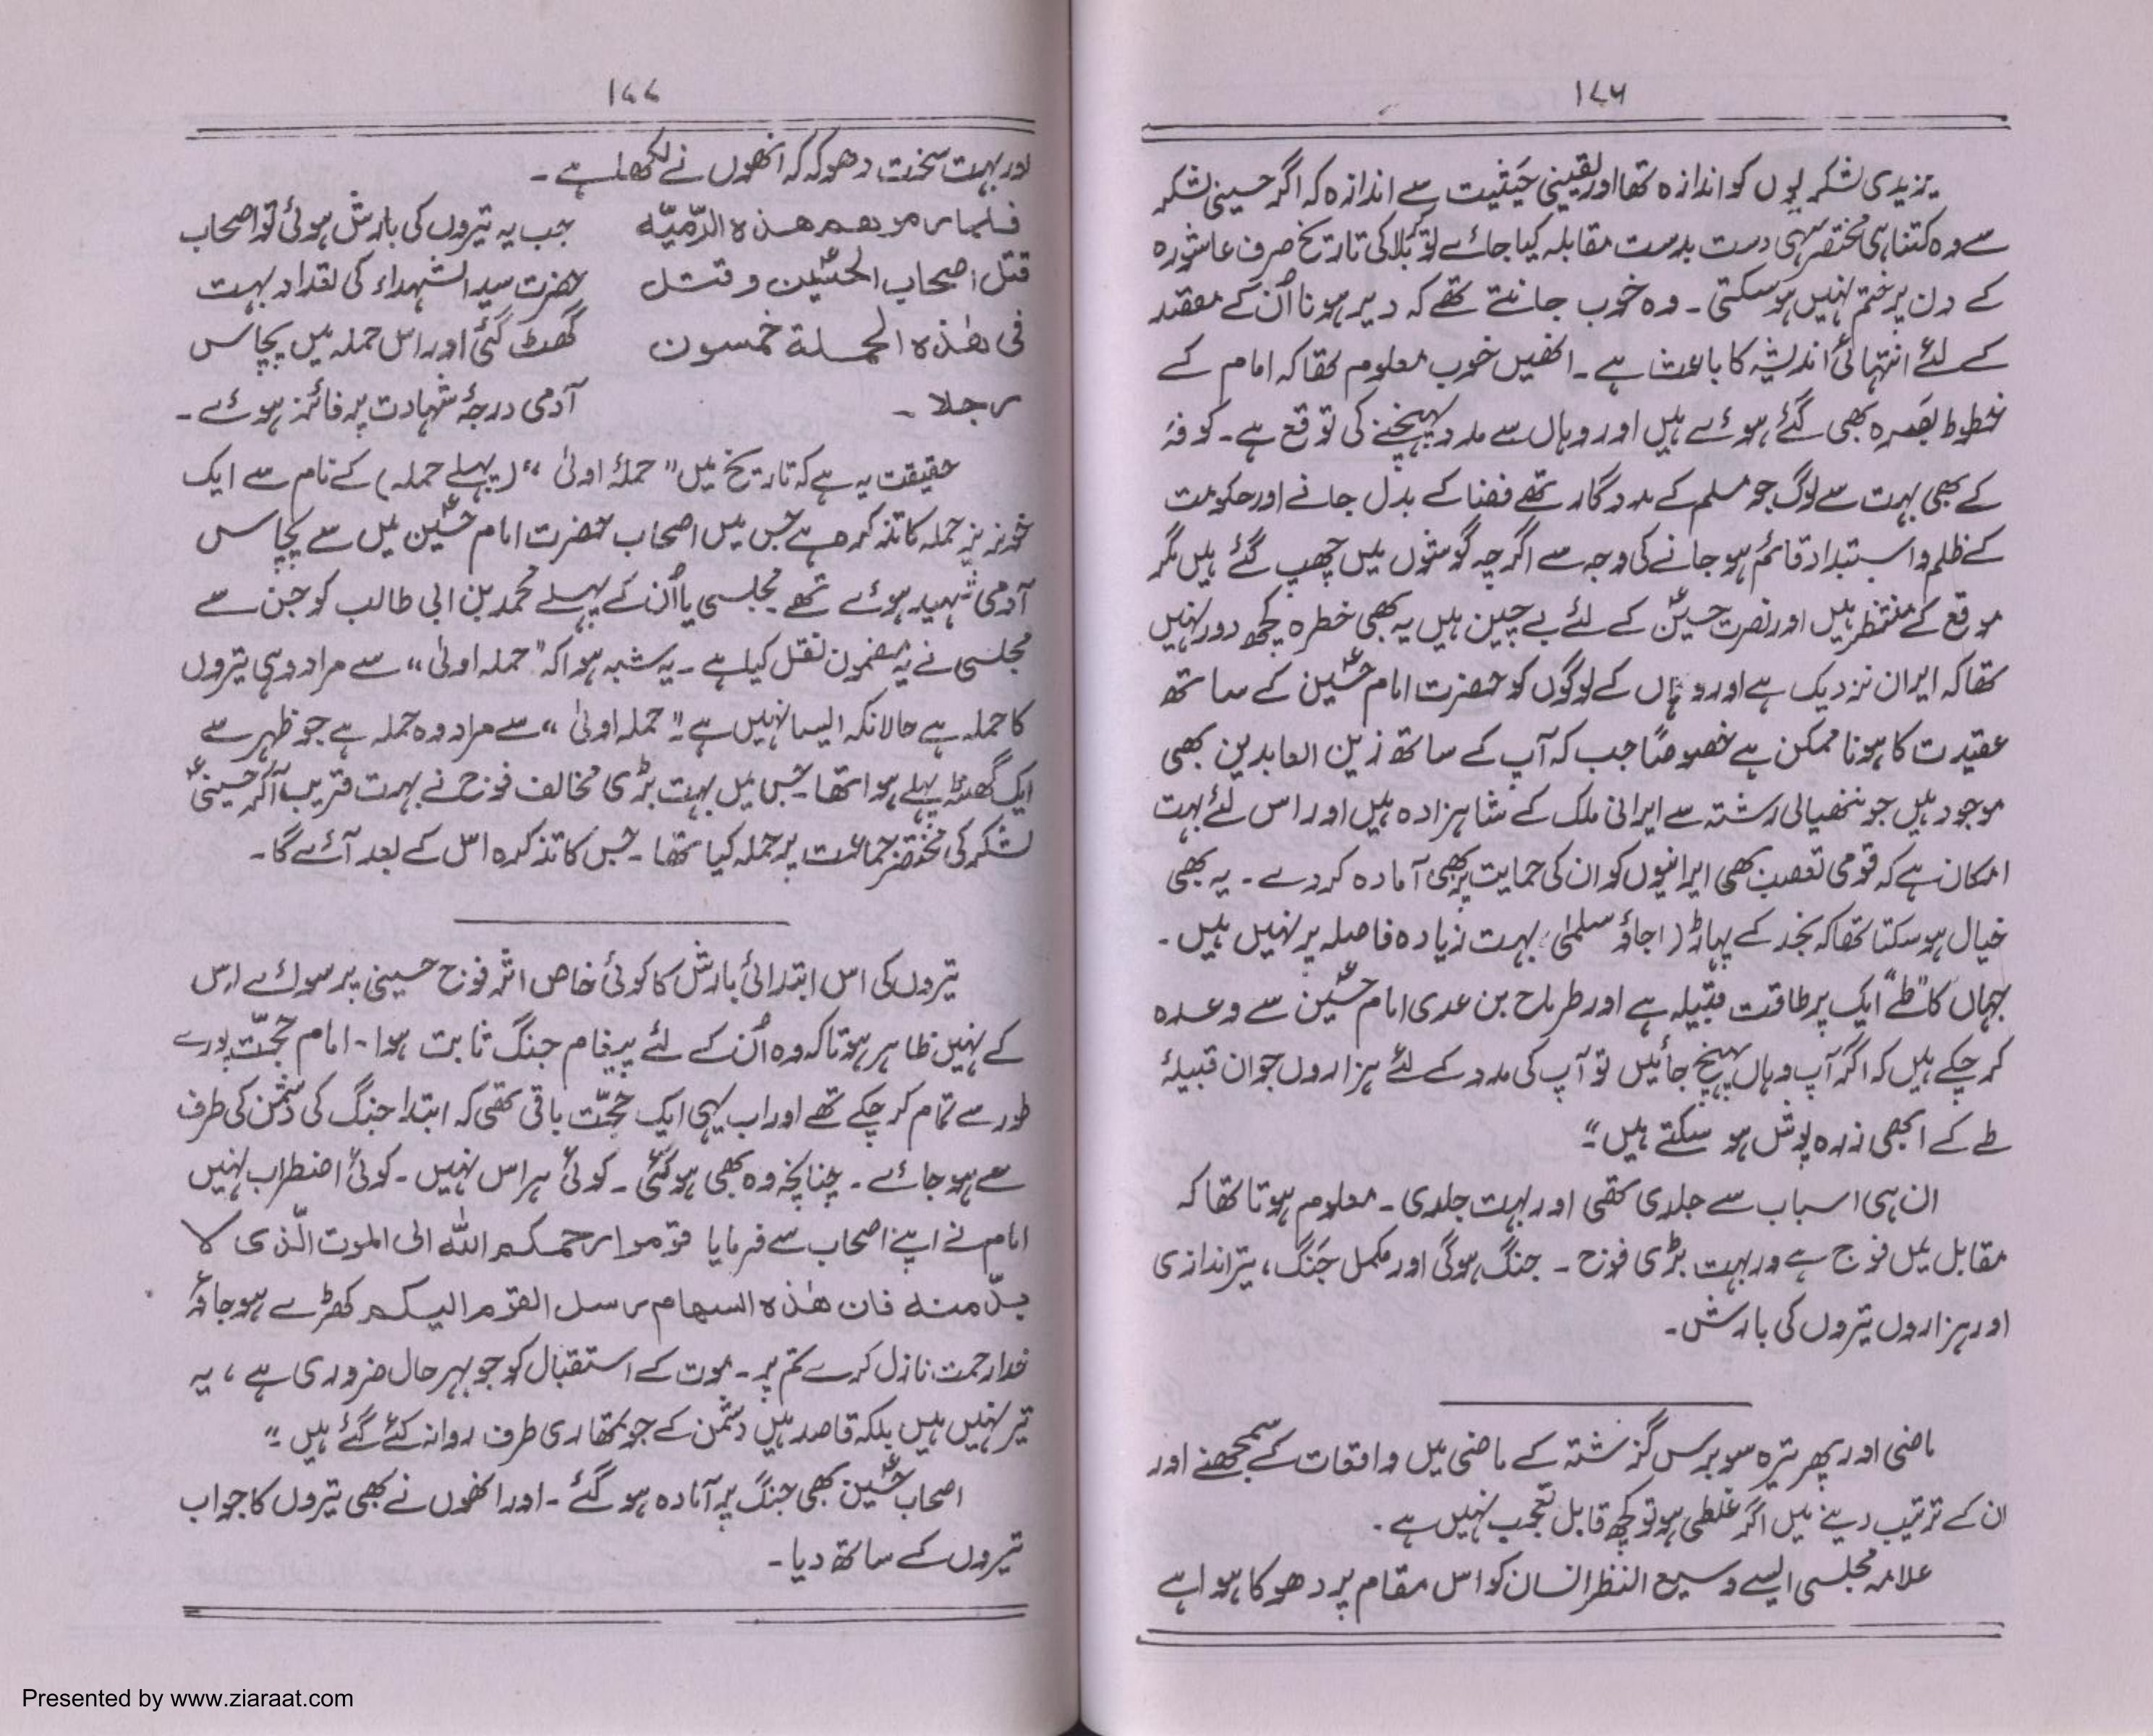 ۱۷۶
یزیدی لشکریوں کو اندازہ تھا اور یقینی حیثیت سے اندازہ کہ اگر حسینی لشکر
سے وہ کتنا ہی مختصر سہی دست بدست مقابلہ کیا جائے تو کربلا کی تاریخ صرف عاشورہ
کے دن پر ختم نہیں ہوسکتی۔ وہ خوب جانتے تھے کہ دیر ہونا اُن کے مقصد
کے لئے انتہائی اندیشہ کا باعث ہے۔ انھیں خوب معلوم تھا کہ امام کے
خطوط بصرہ بھی گئے ہوئے ہیں اور وہاں سے مدد پہنچنے کی توقع ہے۔ کوفہ
کے بھی بہت سے لوگ جو مسلم کے مددگار تھے فضا کے بدل جانے اور حکومت
کے ظلم و استبداد قائم ہوجانے کی وجہ سے اگرچہ گوشوں میں چھپ گئے ہیں مگر
موقع کے منتظر ہیں اور نصرت حسینؑ کے لئے بے چین ہیں یہ بھی خطرہ کچھ دور نہیں
تھا کہ ایران نزدیک ہے اور وہاں کے لوگوں کو حضرت امام حسینؑ کے ساتھ
عقیدت کا ہونا ممکن ہے خصوصًا جب کہ آپ کے ساتھ زین العابدین بھی
موجود ہیں جو ننھیالی رشتہ سے ایرانی ملک کے شاہزادہ ہیں اور اس لئے بہت
امکان ہے کہ قومی تعصب بھی ایرانیوں کو ان کی حمایت پر بھی آمادہ کردے۔ یہ بھی
خیال ہوسکتا تھا کہ نجد کے پہاڑ (اجاؤ سلمیٰ) بہت زیادہ فاصلہ پر نہیں ہیں۔
جہاں کا "طے" ایک پرطاقت قبیلہ ہے اور طرماح بن عدی امام حسینؑ سے وعدہ
کرچکے ہیں کہ اگر آپ وہاں پہنچ جائیں تو آپ کی مدد کے لئے ہزاروں جوان قبیلۂ
طے کے ابھی زرہ پوش ہو سکتے ہیں"۔
ان ہی اسباب سے جلدی تھی اور بہت جلدی۔ معلوم ہوتا تھا کہ
مقابل میں فوج ہے ور بہت بڑی فوج۔ جنگ ہوگی اور مکمل جنگ، تیراندازی
اور ہزاروں تیروں کی بارش۔
ماضی اور پھر تیرہ سو برس گزشتہ کے ماضی میں واقعات کے سمجھنے اور
ان کے ترتیب دینے میں اگر غلطی ہو تو کچھ قابل تعجب نہیں ہے۔
علامہ مجلسی ایسے وسیع النظر انسان کو اس مقام پر دھوکا ہوا ہے
۱۷۷
اور بہت سخت دھوکہ کہ انھوں نے لکھا ہے۔
فلما رموهم هذه الرّميّه جب یہ تیروں کی بارش ہوئی تو اصحاب
قتل اصحاب الحسينؑ وقتل حضرت سید الشہداء کی تعداد بہت
فی هٰذه الحملة خمسون گھٹ گئی اور اس حملہ میں پچاس
رجلا۔ آدمی درجۂ شہادت پر فائز ہوئے۔
حقیقت یہ ہے کہ تاریخ میں "حملۂ اولیٰ" (پہلے حملہ) کے نام سے ایک
خونریز حملہ کا تذکرہ ہے جس میں اصحاب حضرت امام حسینؑ میں سے پچاس
آدمی شہید ہوئے تھے مجلسی یا اُن کے پہلے محمد بن ابی طالب کو جن سے
مجلسی نے یہ مضمون نقل کیا ہے۔ یہ شبہ ہوا کہ "حملہ اولیٰ" سے مراد وہی تیروں
کا حملہ ہے حالانکہ ایسا نہیں ہے "حملہ اولیٰ" سے مراد وہ حملہ ہے جو ظہر سے
ایک گھنٹہ پہلے ہوا تھا۔ جس میں بہت بڑی مخالف فوج نے بہت قریب آکر حسینیؑ
لشکر کی مختصر جماعت پر حملہ کیا تھا۔ جس کا تذکرہ اس کے بعد آئے گا۔
تیروں کی اس ابتدائی بارش کا کوئی خاص اثر فوج حسینی پر سوائے اس
کے نہیں ظاہر ہوتا کہ وہ اُن کے لئے پیغام جنگ ثابت ہوا۔ امام حجّت پورے
طور سے تمام کرچکے تھے اور اب یہی ایک حجّت باقی تھی کہ ابتدا جنگ کی دشمن کی طرف
سے ہوجائے۔ چنانچہ وہ بھی ہوگئی۔ کوئی ہراس نہیں۔ کوئی اضطراب نہیں
امام نے اپنے اصحاب سے فرمایا قوموا رحمكم الله الى الموت الّذى لا
بدّ منه فان هٰذه السهام رسل القوم اليكم کھڑے ہوجاؤ
خدا رحمت نازل کرے تم پر۔ موت کے استقبال کو جو بہرحال ضروری ہے، یہ
تیر نہیں ہیں بلکہ قاصد ہیں دشمن کے جو تمھاری طرف روانہ کئے گئے ہیں"۔
اصحاب حسینؑ بھی جنگ پر آمادہ ہوگئے۔ اور انھوں نے بھی تیروں کا جواب
تیروں کے ساتھ دیا۔
Presented by www.ziaraat.com